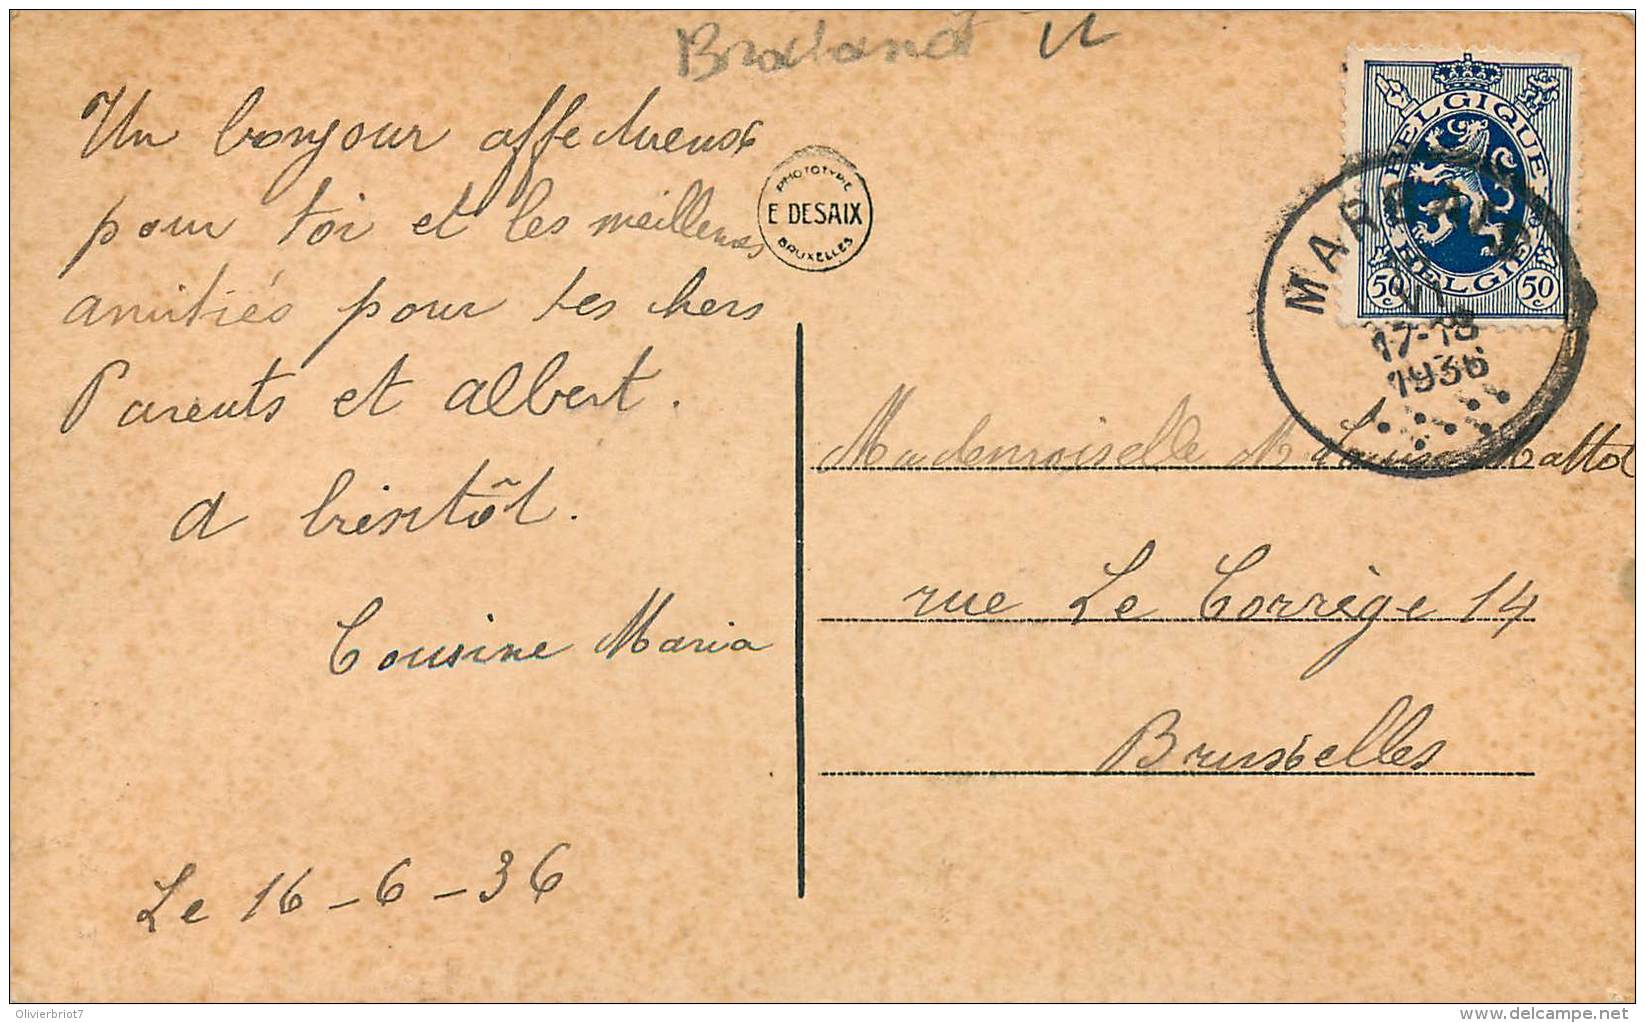 Brabant
Un bonjour affectueux
pour toi et les meilleures
amitiés pour tes chers
Parents et albert.
a bientôt.
Cousine Maria
Le 16-6-36
PHOTOTYPIE
E DESAIX
BRUXELLES
BELGIQUE
BELGIE
50 c
50 c
VI
17-18
1936
Mademoiselle M Louise Mattot
rue Le Corrège 14
Bruxelles
Olivierbriot7
delcampe.net